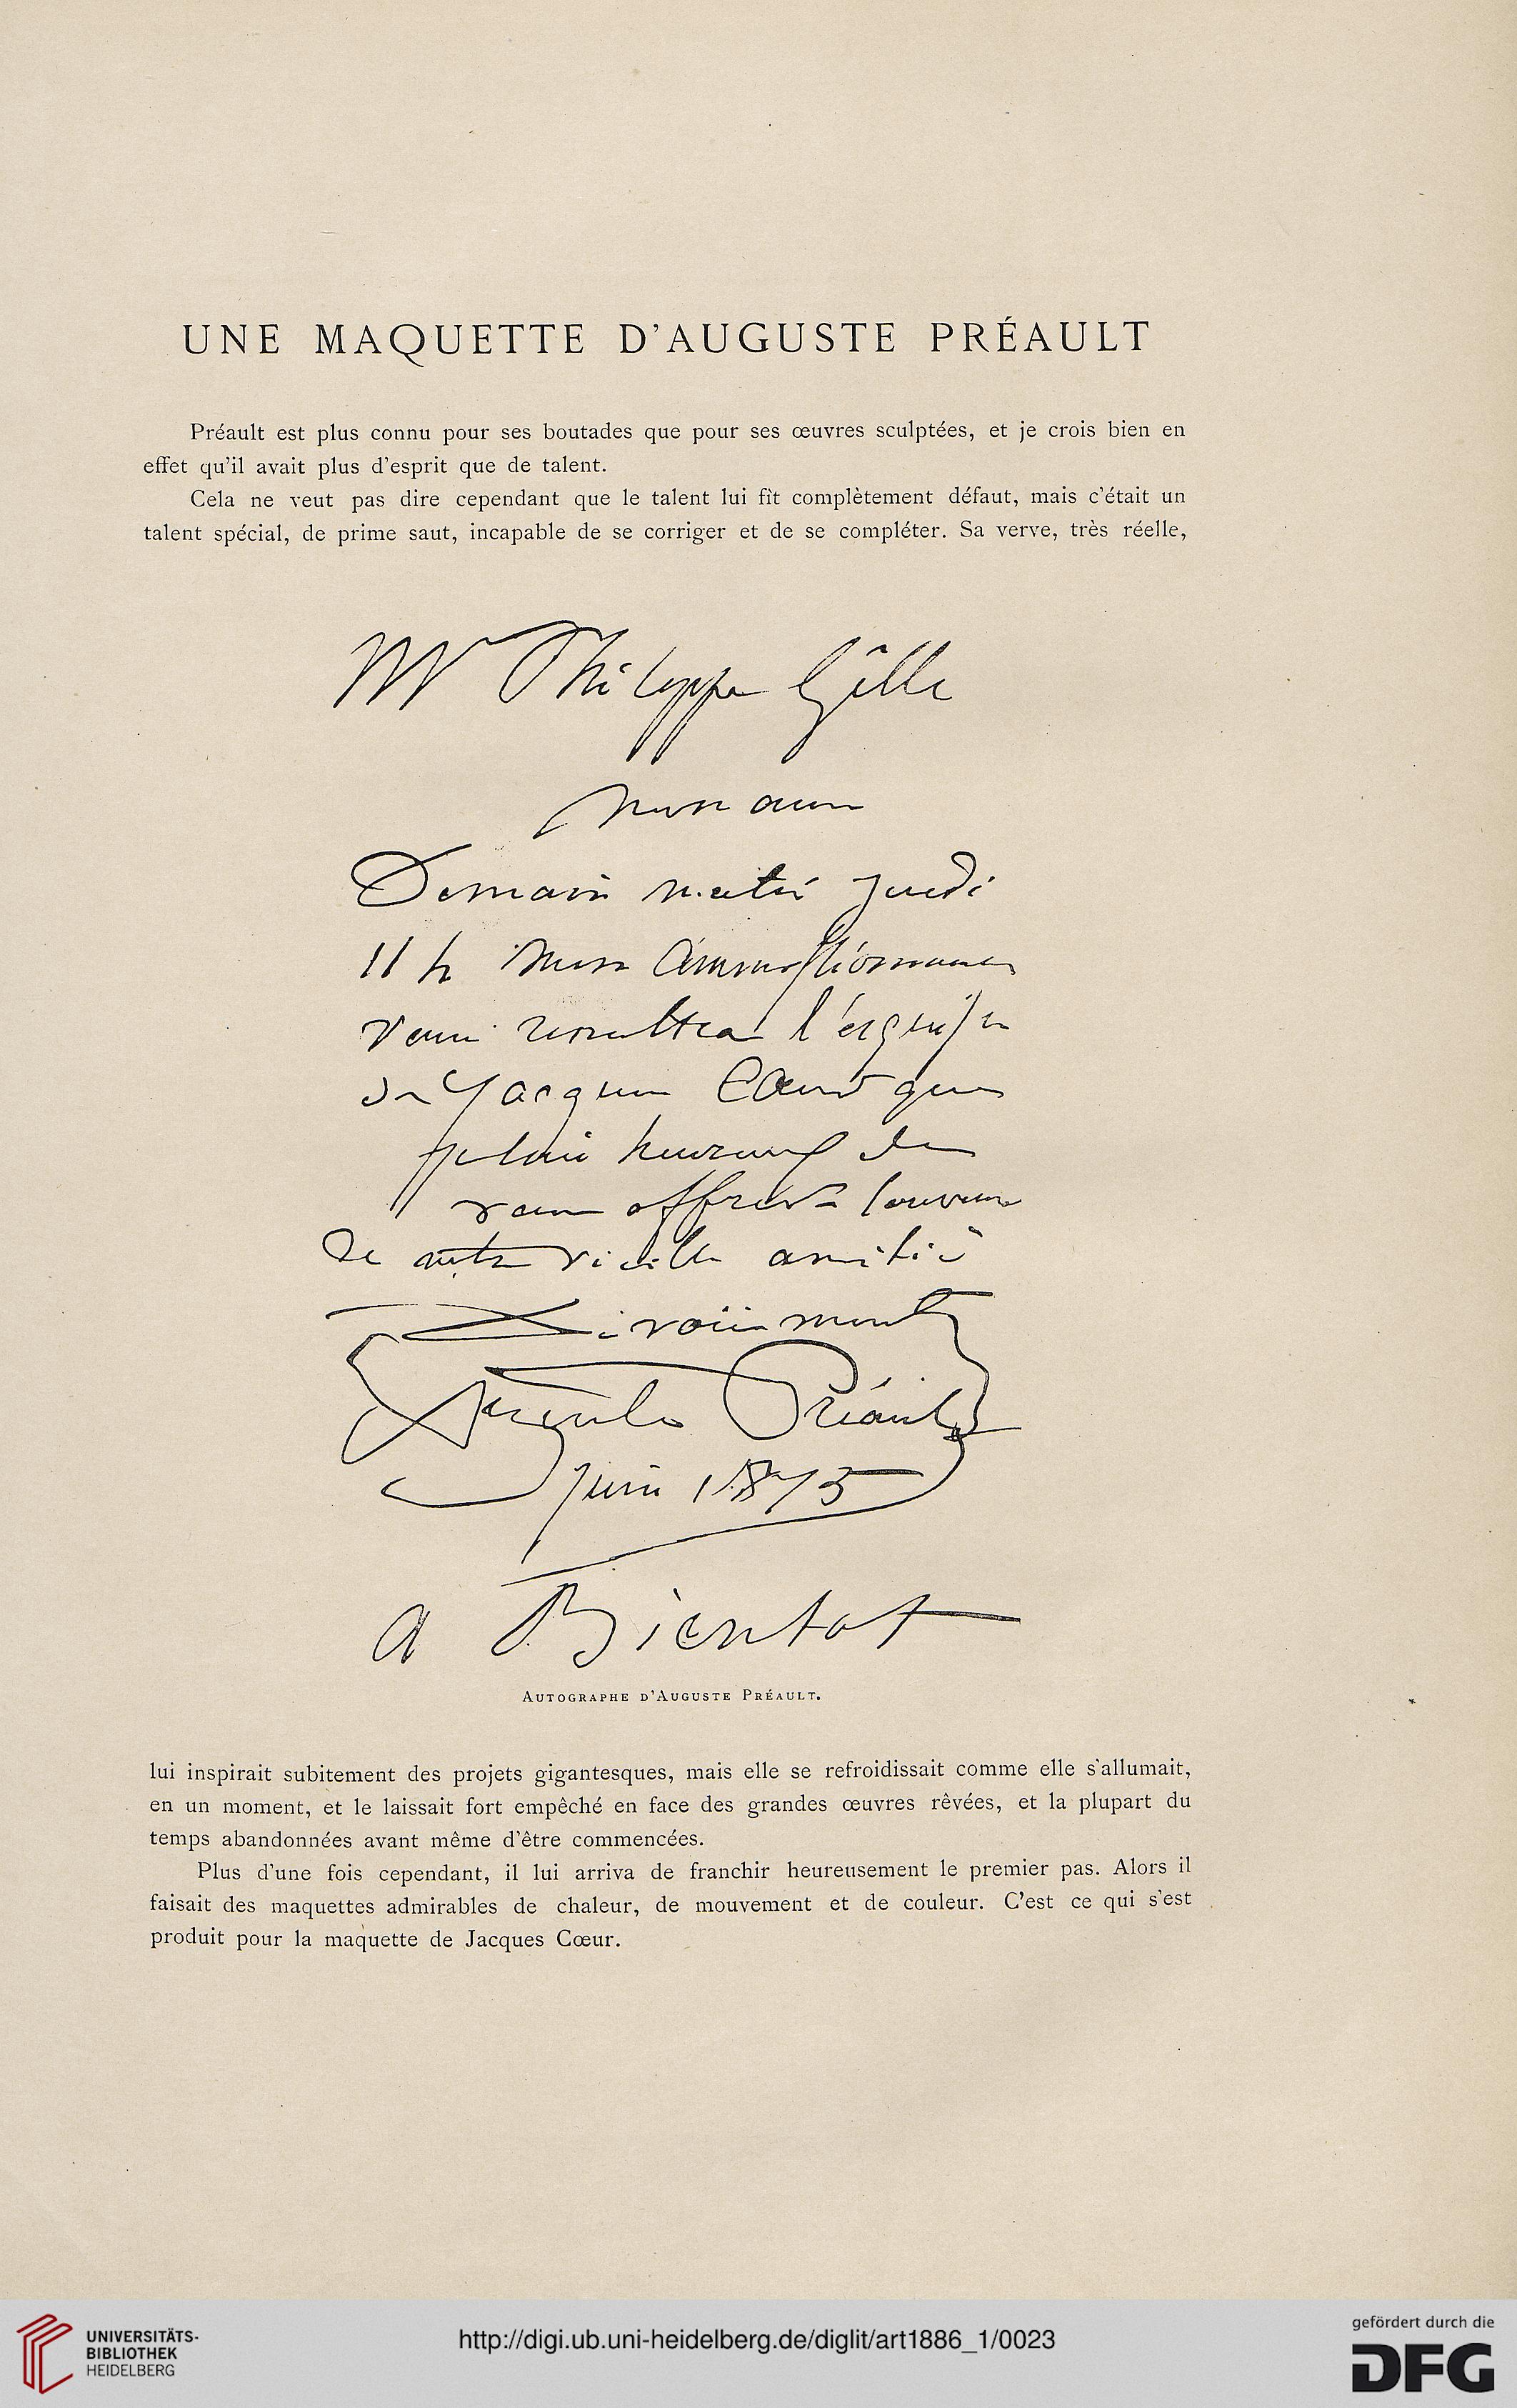 UNE MAQUETTE D'AUGUSTE PRÉAULT
Préault est plus connu pour ses boutades que pour ses œuvres sculptées, et je crois bien en
effet qu'il avait plus d'esprit que de talent.
Cela ne veut pas dire cependant que le talent lui fît complètement défaut, mais c'était un
talent spécial, de prime saut, incapable de se corriger et de se compléter. Sa verve, très réelle,
Mr Philippe Gille
Mon ami
Demain matin jeudi
11 h mon commissionnaire
vous remettra l'esquisse
de Jacques Cœur que
je suis heureux de
vous offrir souvenir
de notre vieille amitié
Auguste Préault
juin 1875
a Bientot
AUTOGRAPHE D'AUGUSTE PRÉAULT.
lui inspirait subitement des projets gigantesques, mais elle se refroidissait comme elle s'allumait,
en un moment, et le laissait fort empêché en face des grandes œuvres rêvées, et la plupart du
temps abandonnées avant même d'être commencées.
Plus d'une fois cependant, il lui arriva de franchir heureusement le premier pas. Alors il
faisait des maquettes admirables de chaleur, de mouvement et de couleur. C'est ce qui s'est
produit pour la maquette de Jacques Cœur.
UNIVERSITÄTS-
BIBLIOTHEK
HEIDELBERG
http://digi.ub.uni-heidelberg.de/diglit/art1886_1/0023
gefördert durch die
DFG